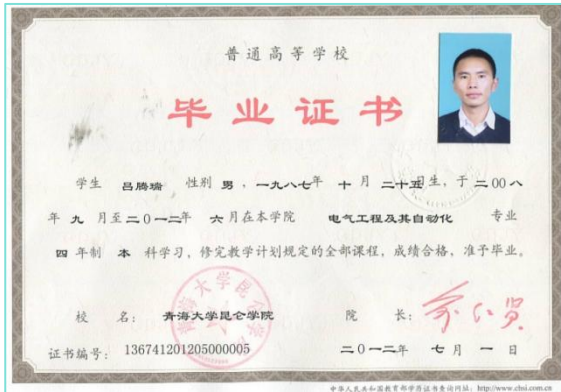 普通高等学校
毕业证书
学生 吕腾瑞 性别 男，一九八七年 十 月 二十五日生，于二00八
年 九 月至二0一二年 六 月在本学院 电气工程及其自动化 专业
四 年制 本 科学习，修完教学计划规定的全部课程，成绩合格，准予毕业。
校 名： 青海大学昆仑学院 院 长：
证书编号： 136741201205000005 二0一二年 七 月 一 日
中华人民共和国教育部学历证书查询网址：http://www.chsi.com.cn